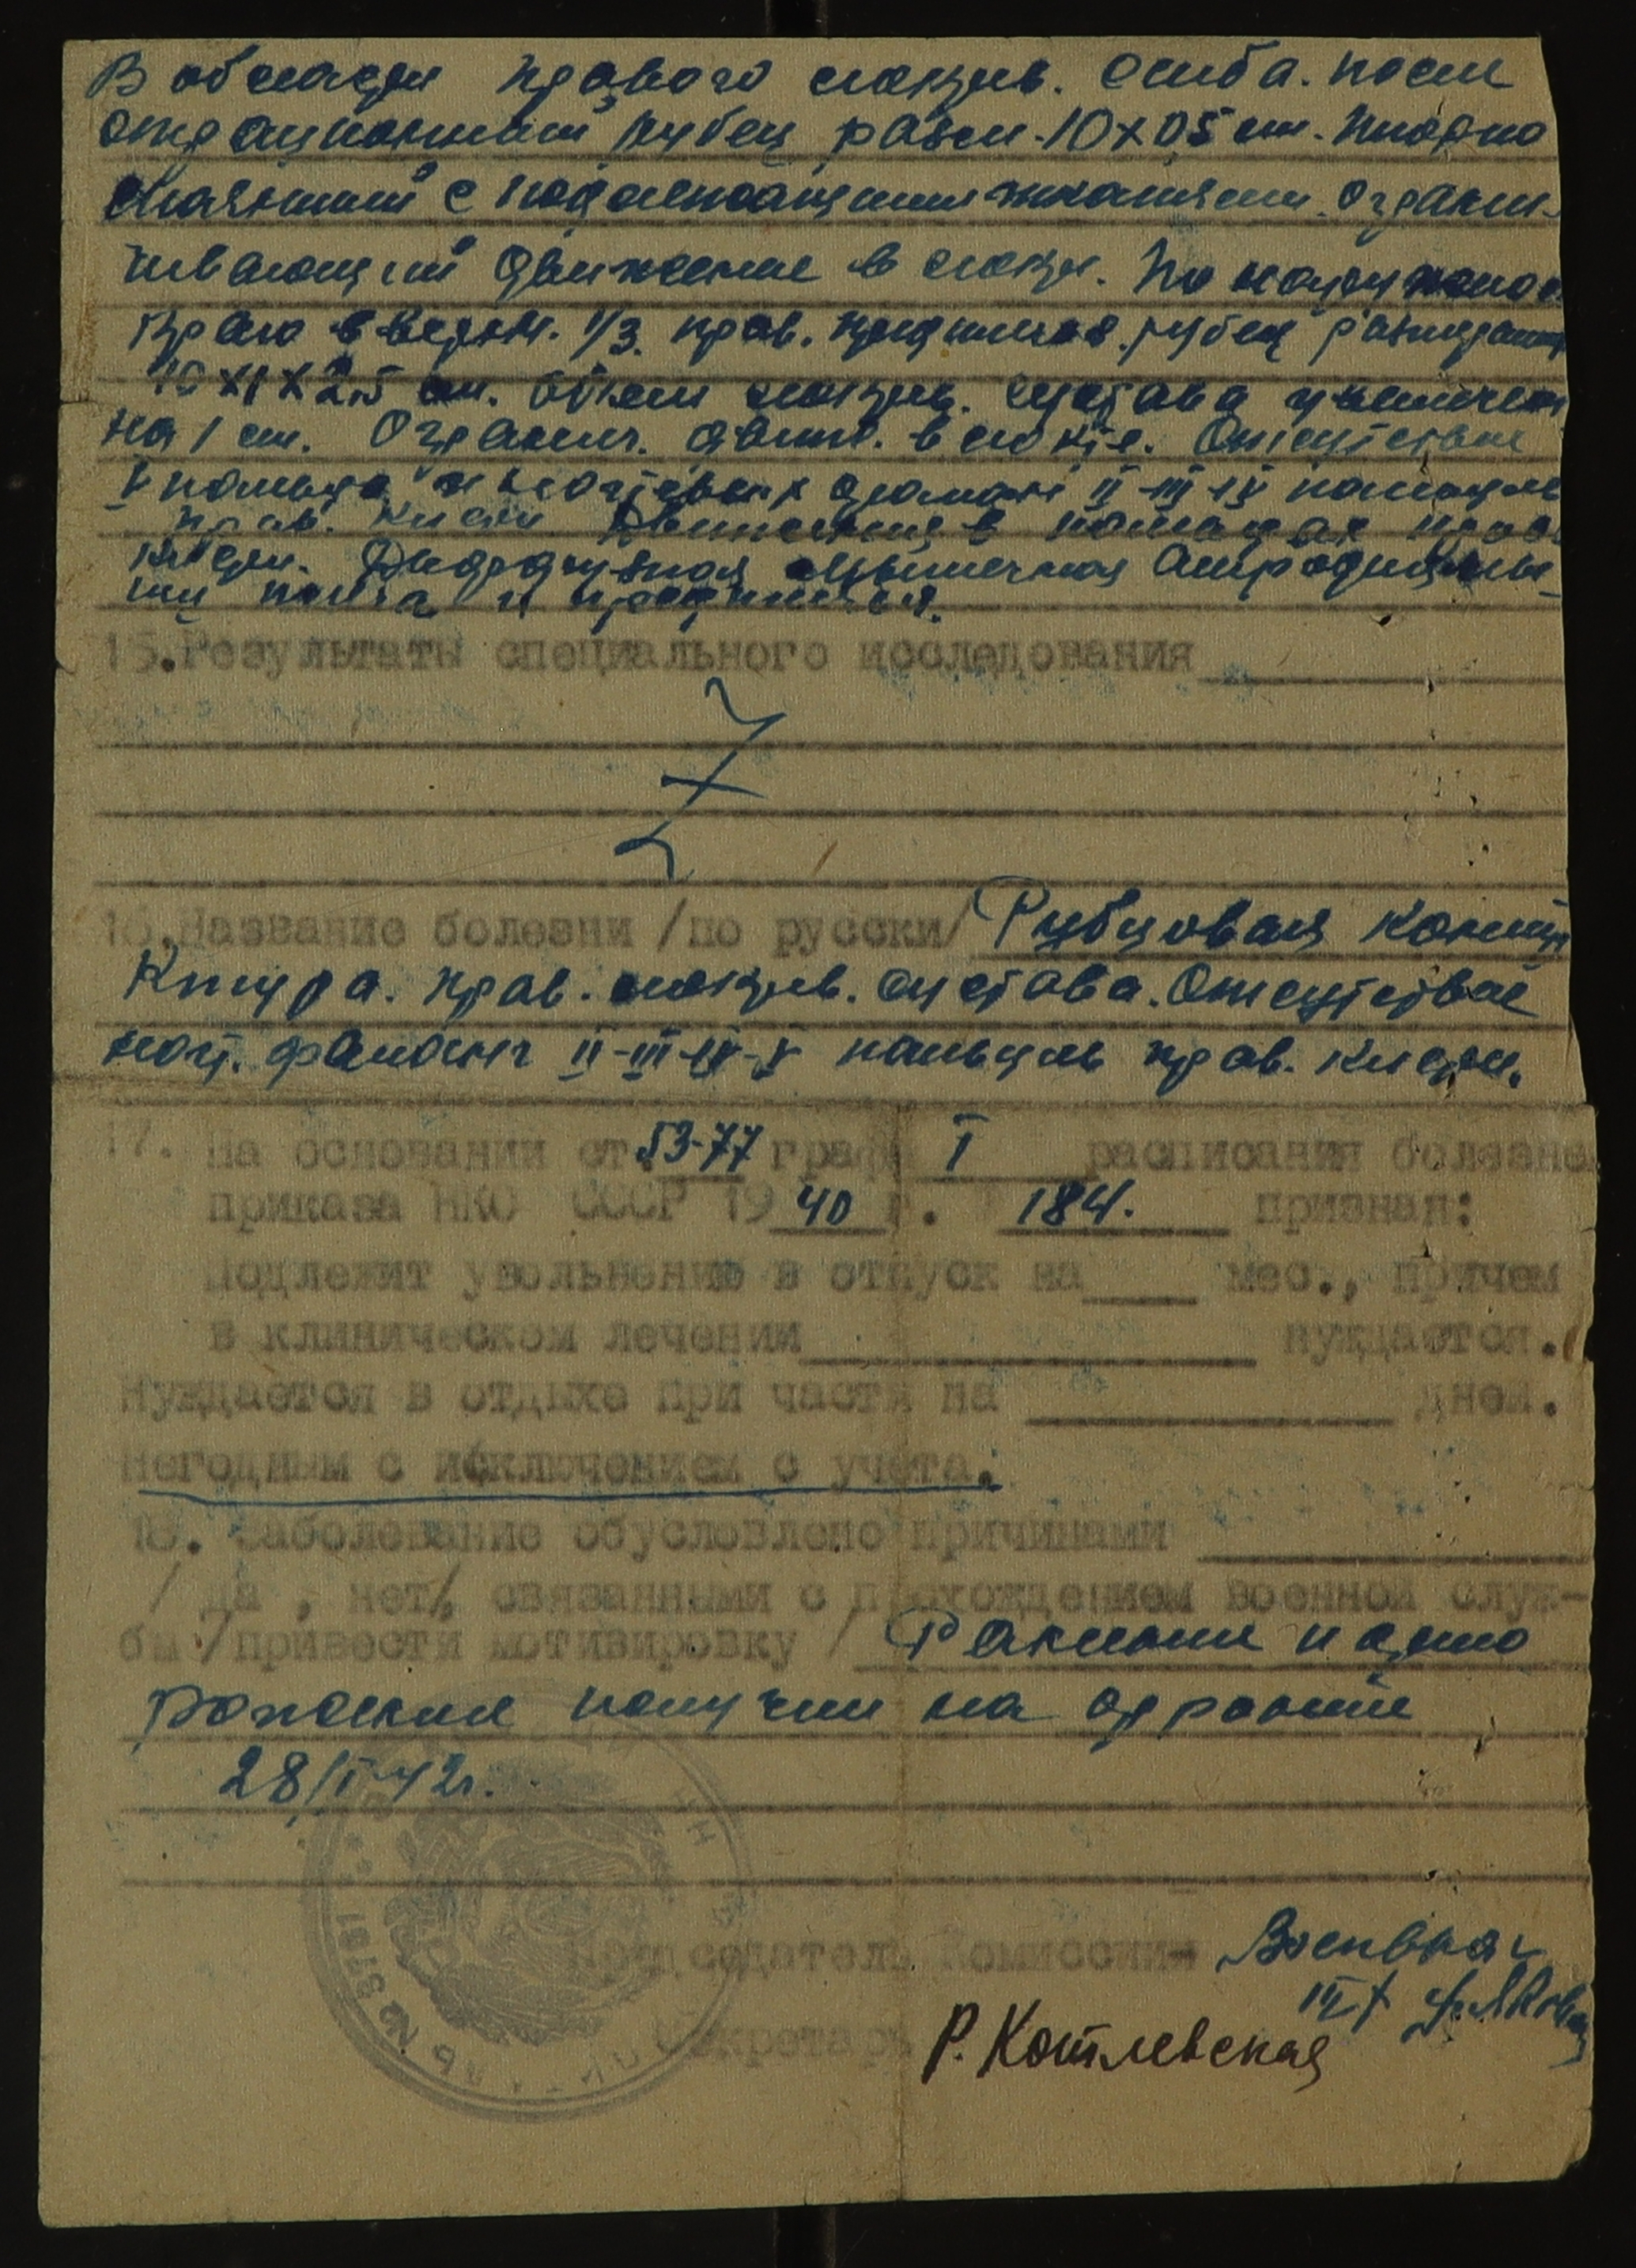 В области правого локтев. сгиба. после
операционный рубец разм. 10х0,5 см. плотно
спаянный с подлежащими тканями. Ограни-
чивающий движение в локте. По наружному
краю в верхн. 1/3. прав. предплечья. рубец размерами
10х1х2,5 см. Объем локтев. сустава увеличен
на 1 см. Огранич. движ. в локте. Отсутствие
V пальца и ногтевых фаланг II-III-IV пальцев
прав. кисти. Движения в пальцах прав.
кисти. мышечная атрофия мы-
шц плеча и предплечья.
15.Результаты специального исследования
Z
16.Название болезни /по русски/ Рубцовая конт
рктура. прав. локтев. сустава. Отсутствие
ногт. фаланг II-III-IV-V пальцев прав. кисти.
17. На основании ст. 53-77 граф I расписания болезней
приказа НКО СССР 1940 г. 184. признан:
Подлежит увольнению в отпуск на ____ мес., причем
в клиническом лечении ____ нуждается.
Нуждается в отдыхе при части на ____ дней.
Негодным с исключением с учета.
18. Заболевание обусловлено причинами ____
/ да , нет/, связанными с прохождением военной служ-
бы /привести мотивировку / Ранение и обмо
рожение получил на фронте
28/I-42г.
Председатель Комиссии- Военврач
III р
Секретарь Р. Котлевская
№ 5781